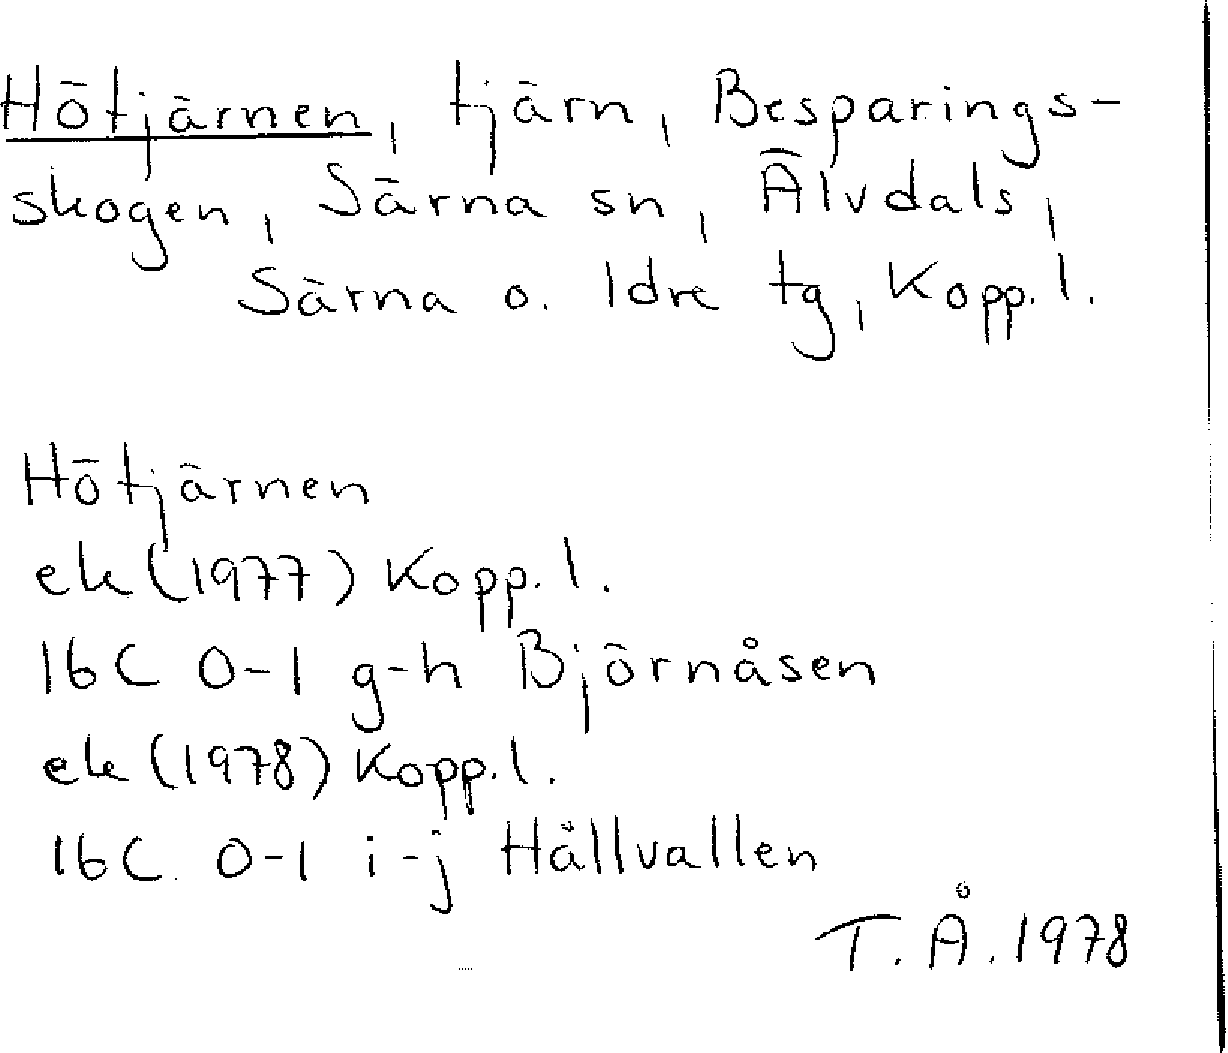 Hötjärnen, tjärn, Besparings-
skogen, Särna sn, Älvdals,
Särna o. Idre tg, Kopp. l.
Hötjärnen
ek (1977) Kopp. l.
16C 0-1 g-h Björnåsen
ek (1978) Kopp. l.
16C. 0-1 i-j Hållvallen
T. Å. 1978